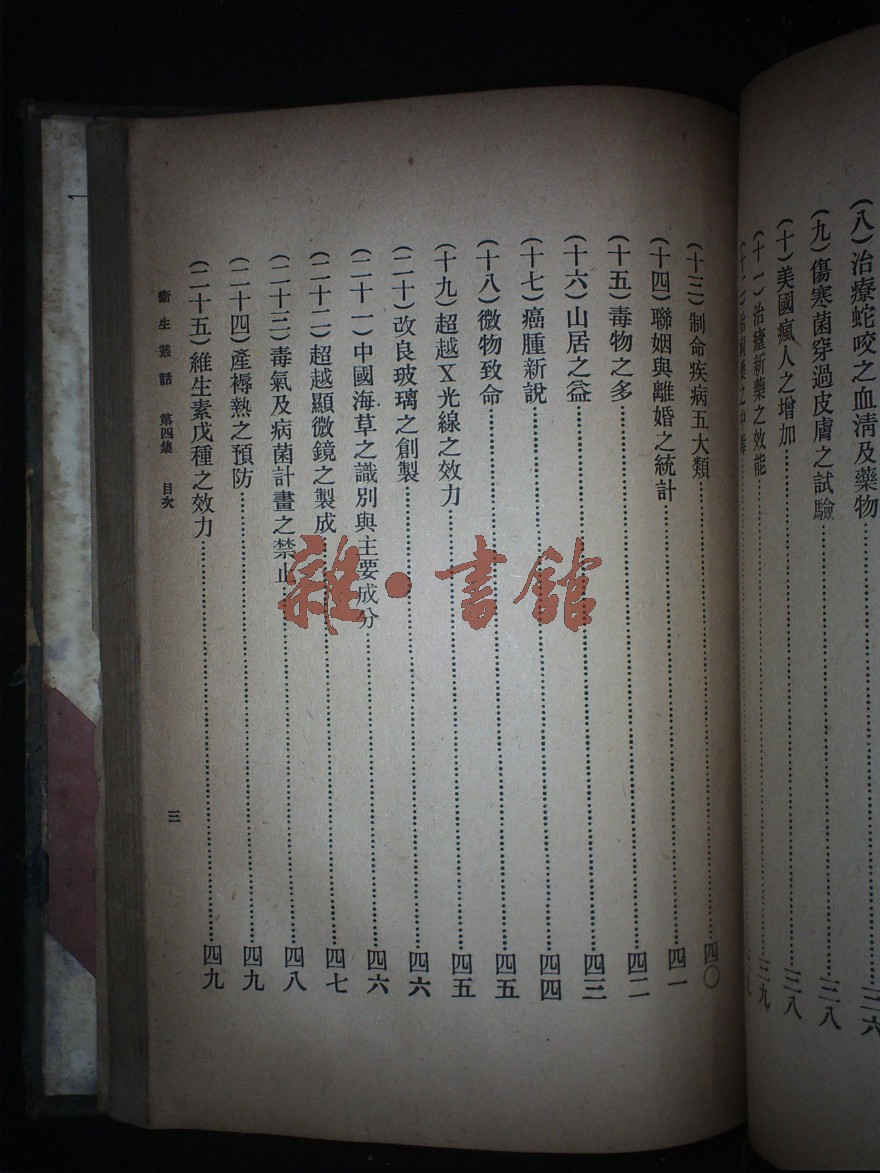 (八)治療蛇咬之血清及藥物……三六
(九)傷寒菌穿過皮膚之試驗……三八
(十)美國瘋人之增加……三八
(十一)治瘧新藥之效能……三九
(十三)制命疾病五大類……四〇
(十四)聯姻與離婚之統計……四一
(十五)毒物之多……四二
(十六)山居之益……四三
(十七)癌腫新說……四四
(十八)微物致命……四五
(十九)超越X光線之效力……四五
(二十)改良玻璃之創製……四六
(二十一)中國海草之識別與主要成分……四六
(二十二)超越顯微鏡之製成……四七
(二十三)毒氣及病菌計畫之禁止……四八
(二十四)產褥熱之預防……四九
(二十五)維生素戊種之效力……四九
衞生叢話 第四集 目次 三
雜·書館